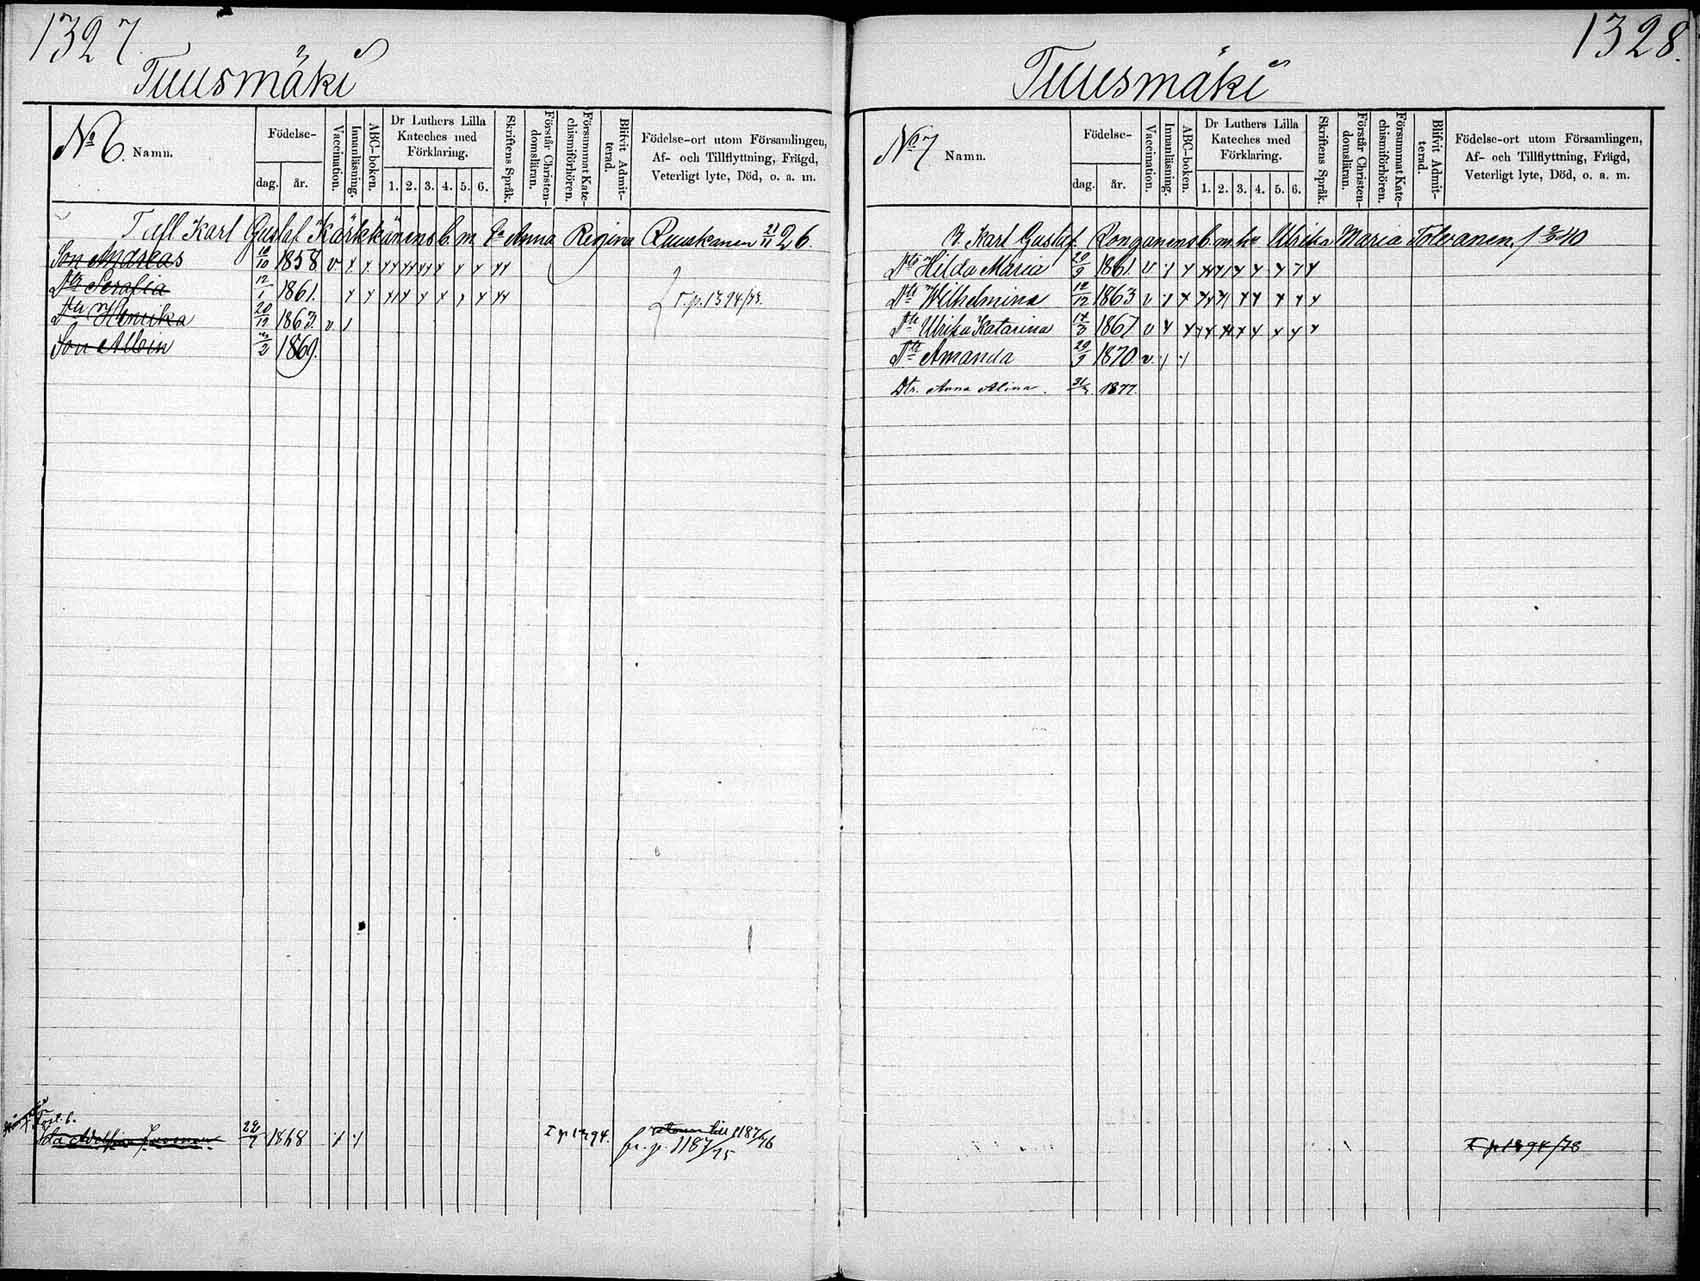 1327
Tuusmäki
No 6. Namn.
Födelse-
dag. år.
Vaccination.
Innanläsning.
ABC-boken.
Dr Luthers Lilla
Kateches med
Förklaring.
1. 2. 3. 4. 5. 6.
Skriftens Språk.
Förstår Christen-
domsläran.
Försummat Kate-
chismiförhören.
Blifvit Admit-
terad.
Födelse-ort utom Församlingen,
Af- och Tillflyttning, Frägd,
Veterligt lyte, Död, o. a. m.
Karl Gustaf Kärkkäinens b. m. Anna Regina Ruuskanen 26.
Son Andreas 1858 v
Dtr Serafia 12/1 1861.
T. p. 1394/73.
Dtr Henrika 1863. v
Son Albin 1869.
Ida Adolfina 1868
T p 1394.
fr. p. 1187/75
1187/76
1328.
Tuusmäki
No 7 Namn.
Födelse-
dag. år.
Vaccination.
Innanläsning.
ABC-boken.
Dr Luthers Lilla
Kateches med
Förklaring.
1. 2. 3. 4. 5. 6.
Skriftens Språk.
Förstår Christen-
domsläran.
Försummat Kate-
chismiförhören.
Blifvit Admit-
terad.
Födelse-ort utom Församlingen,
Af- och Tillflyttning, Frägd,
Veterligt lyte, Död, o. a. m.
B. Karl Gustaf Ronganens b. m. h:u Ulrika Maria Tolvanen, 40
Dtr Hilda Maria 29/9 1861. v
Dtr Wilhelmina 12/12 1863 v
Dtr Ulrika Katarina 14/3 1867 v
Dtr Amanda 29/9 1870 v
Dtr. Anna Alina. 1877.
T p 1394/78